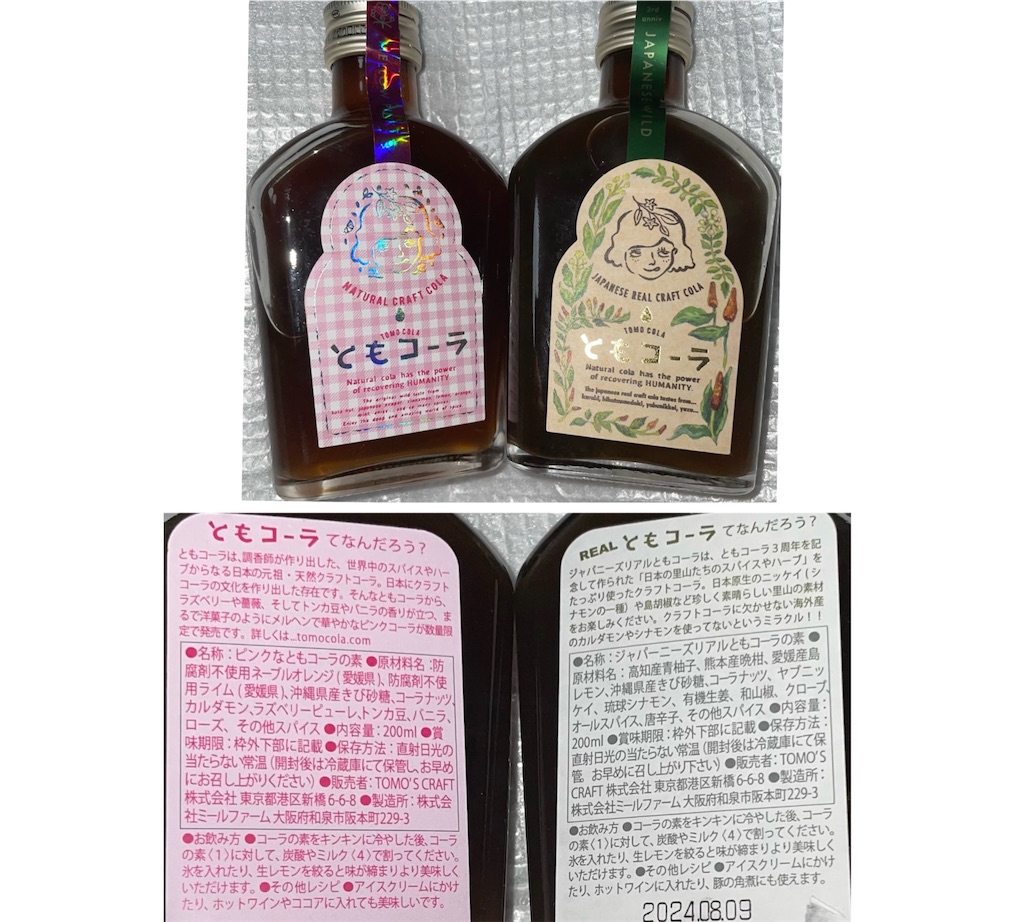 MELLOW PINK
NATURAL CRAFT COLA
TOMO COLA
ともコーラ
Natural cola has the power
of recovering HUMANITY.
The original wild taste from
kola nut, japanese pepper, cinnamon, lemon, orange,
Enjoy the deep and amazing world of spice
3rd
anniv
JAPANESE WILD
JAPANESE REAL CRAFT COLA
TOMO COLA
ともコーラ
Natural cola has the power
of recovering HUMANITY.
The japanese real craft cola tastes from...
ともコーラ てなんだろう?
ともコーラは、調香師が作り出した、世界中のスパイスやハー
ブからなる日本の元祖・天然クラフトコーラ。日本にクラフト
コーラの文化を作り出した存在です。そんなともコーラから、
ラズベリーや薔薇、そしてトンカ豆やバニラの香りが立つ、ま
るで洋菓子のようにメルヘンで華やかなピンクコーラが数量限
定で発売です。詳しくは...tomocola.com
●名称:ピンクなともコーラの素 ●原材料名:防
腐剤不使用ネーブルオレンジ(愛媛県)、防腐剤不使
用ライム(愛媛県)、沖縄県産きび砂糖、コーラナッツ、
カルダモン、ラズベリーピューレ、トンカ豆、バニラ、
ローズ、その他スパイス ●内容量:200ml ●賞
味期限:枠外下部に記載 ●保存方法:直射日光の
当たらない常温(開封後は冷蔵庫にて保管し、お早め
にお召し上がりください) ●販売者:TOMO'S CRAFT
株式会社 東京都港区新橋6-6-8 ●製造所:株式会
社ミールファーム 大阪府和泉市阪本町229-3
●お飲み方 ●コーラの素をキンキンに冷やした後、コーラ
の素〈1〉に対して、炭酸やミルク〈4〉で割ってください。
氷を入れたり、生レモンを絞ると味が締まりより美味しく
いただけます。●その他レシピ ●アイスクリームにかけ
たり、ホットワインやココアに入れても美味しいです。
REAL ともコーラ てなんだろう?
ジャパニーズリアルともコーラは、ともコーラ3周年を記
念して作られた「日本の里山たちのスパイスやハーブ」を
たっぷり使ったクラフトコーラ。日本原生のニッケイ(シ
ナモンの一種)や島胡椒など珍しく素晴らしい里山の素材
をお楽しみください。クラフトコーラに欠かせない海外産
のカルダモンやシナモンを使ってないというミラクル!!
●名称:ジャパーニーズリアルともコーラの素 ●
原材料名:高知産青柚子、熊本産晩柑、愛媛産島
レモン、沖縄県産きび砂糖、コーラナッツ、ヤブニッ
ケイ、琉球シナモン、有機生姜、和山椒、クローブ、
オールスパイス、唐辛子、その他スパイス ●内容量:
200ml ●賞味期限:枠外下部に記載 ●保存方法:
直射日光の当たらない常温(開封後は冷蔵庫にて保
管、お早めに召し上がり下さい) ●販売者:TOMO'S
CRAFT 株式会社 東京都港区新橋6-6-8 ●製造所:
株式会社ミールファーム 大阪府和泉市阪本町229-3
●お飲み方 ●コーラの素をキンキンに冷やした後、コーラの
素〈1〉に対して、炭酸やミルク〈4〉で割ってください。
氷を入れたり、生レモンを絞ると味が締まりより美味しく
いただけます。●その他レシピ ●アイスクリームにかけ
たり、ホットワインに入れたり、豚の角煮にも使えます。
2024.08.09